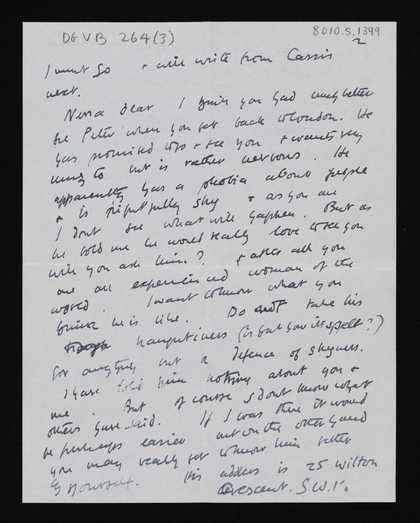 DGVB 264(3)
8010.5.1399
2
I must go & will write from Cassis
next.
Nessa dear I think you had much better
see Peter when you get back to London. He
has promised to & see you & wants very
much to but is rather nervous. He
apparently has a phobia about people
& is frightfully shy & as you are
I dont see what will happen. But as
he told me he would really love to see you
will you ask him? & after all you
are an experienced woman of the
world. I want to know what you
think he is like. Do not take his
haughtiness (is that how its spelt?)
for anything but a defence of shyness.
I have told him nothing about you &
me. But of course I dont know what
others have said. If I was there it would
be perhaps easier but on the other hand
you may really get to know him better
by yourself. His address is 25 Wilton
Crescent. S.W.1.